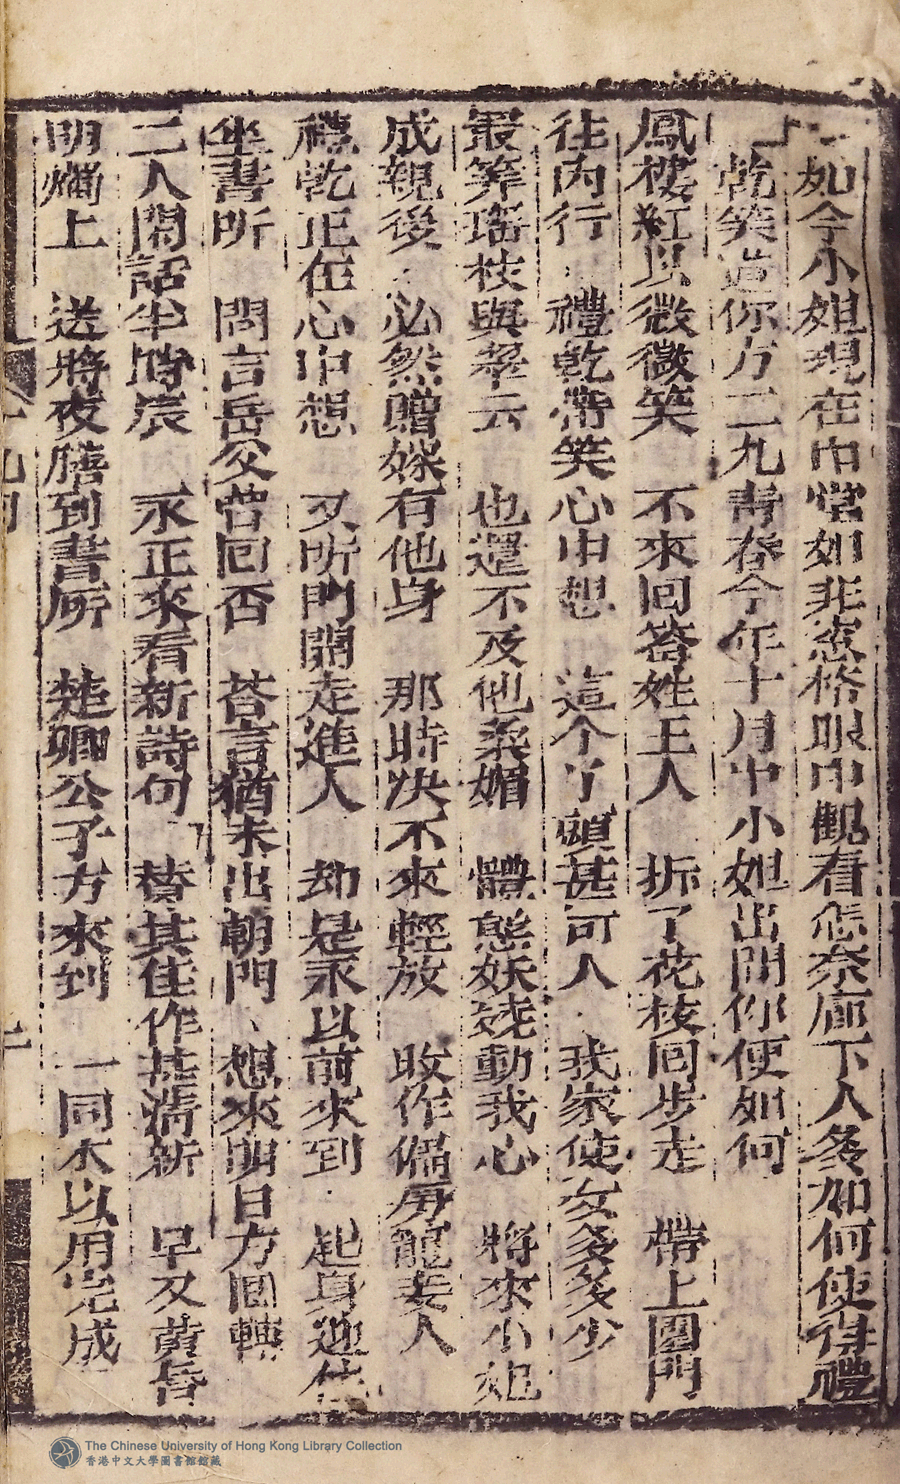 如今小姐現在巾當如非窓格眼中觀看怎奈廊下人多如何使得禮
乾笑道你方二九青春今年十月中小姐出閣你便如何
鳳樓紅以微微笑 不來回答姓王人 折了花枝回步走 帶上園門
往內行 禮乾帶笑心中想 這个丫頭甚可人 我家使女多多少
最筭瑤枝與翠云 也還不及他柔媚 體態妖嬈動我心 將來小姐
成親後 必然贈嫁有他身 那時决不來輕放 收作偏房寵妾人
禮乾正在心中想 又听門開走進人 却是永以前來到 起身迎
坐書所 問言岳父曾回否 荅言猶未出朝門 想來明日方回轉
二人閑話半時辰 永正來看新詩句 賛其佳作甚清新 早又黄昏
明燭上 送將夜膳到書所 楚卿公子方來到 一同木以用完成
九回
二
The Chinese University of Hong Kong Library Collection
香港中文大學圖書館館藏